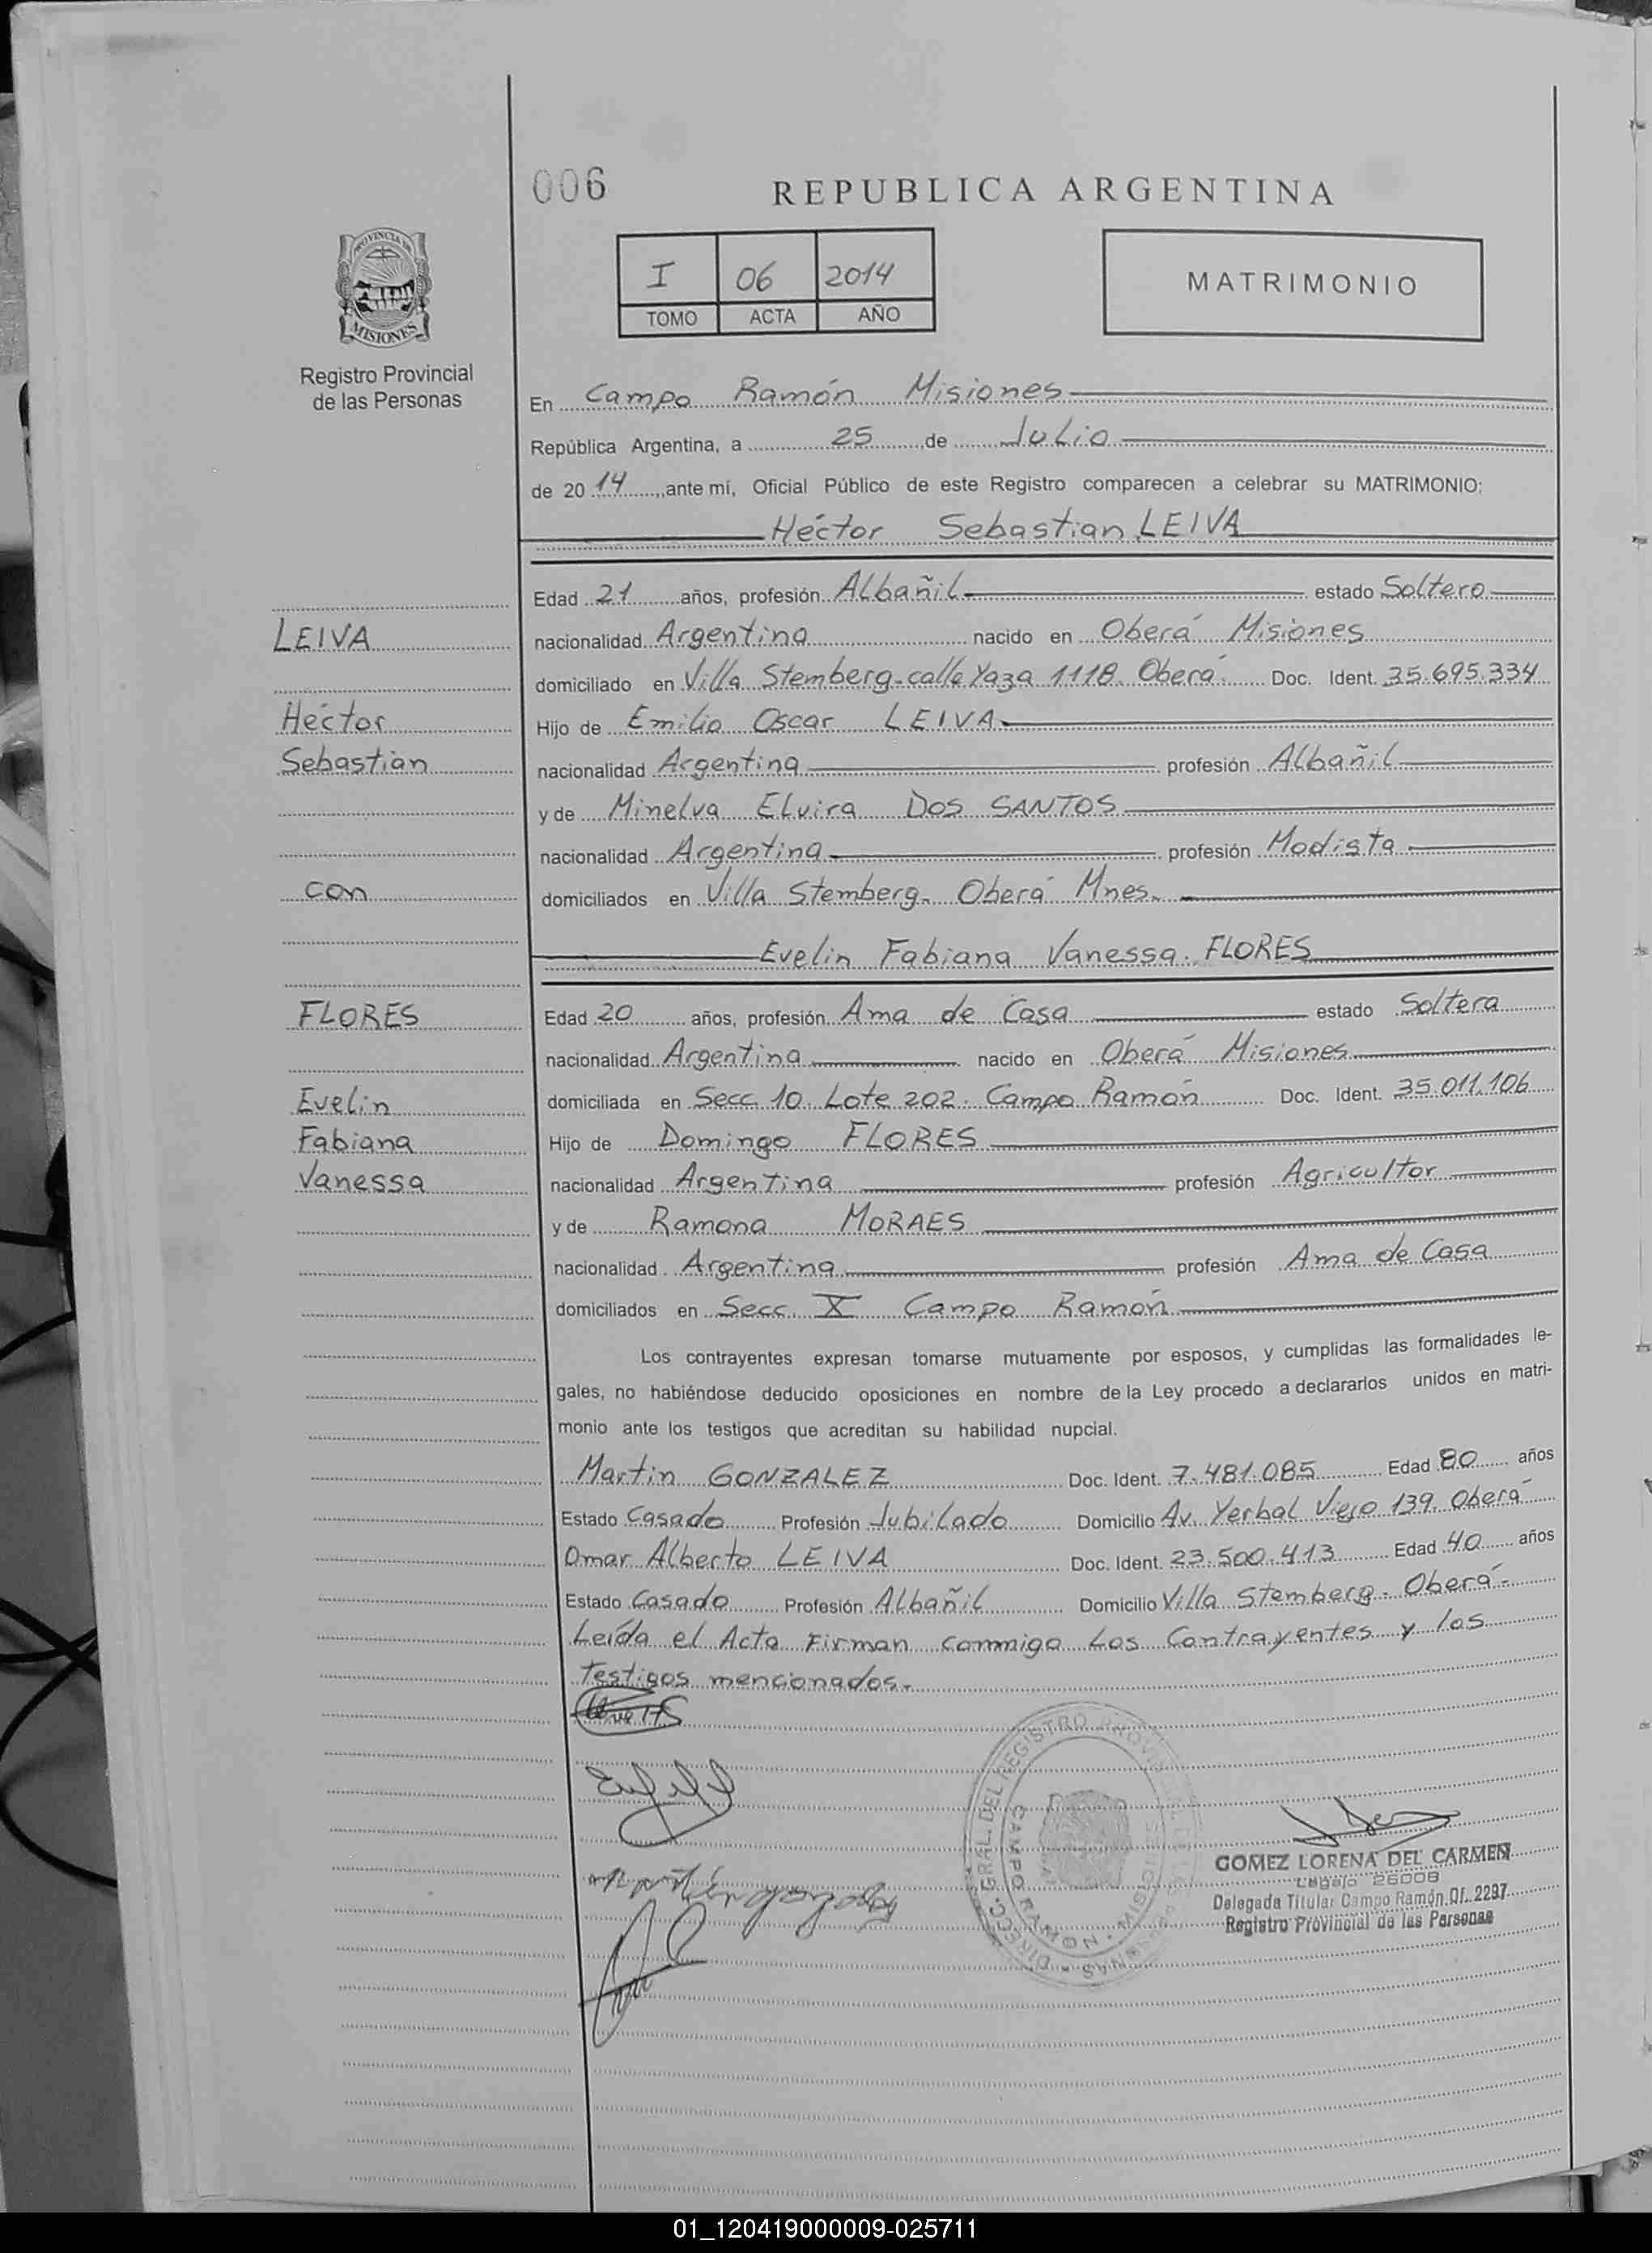 006
REPUBLICA ARGENTINA
PROVINCIA DE
MISIONES
Registro Provincial
de las Personas
I 06 2014
TOMO ACTA AÑO
MATRIMONIO
En Campo Ramón Misiones
República Argentina, a 25 de Julio
de 2014, ante mí, Oficial Público de este Registro comparecen a celebrar su MATRIMONIO:
Héctor Sebastian LEIVA
Edad 21 años, profesión Albañil estado Soltero
LEIVA
nacionalidad Argentina nacido en Oberá Misiones
domiciliado en Villa Stemberg-calle Yaza 1118. Oberá. Doc. Ident. 35.695.334
Héctor
Hijo de Emilio Oscar LEIVA
Sebastian
nacionalidad Argentina profesión Albañil
y de Minelva Elvira DOS SANTOS
nacionalidad Argentina profesión Modista
con
domiciliados en Villa Stemberg. Oberá Mnes.
Evelin Fabiana Vanessa FLORES
FLORES
Edad 20 años, profesión Ama de Casa estado Soltera
nacionalidad Argentina nacido en Oberá Misiones
Evelin
domiciliada en Secc 10. Lote 202. Campo Ramón Doc. Ident. 35.011.106
Fabiana
Hijo de Domingo FLORES
Vanessa
nacionalidad Argentina profesión Agricultor
y de Ramona MORAES
nacionalidad Argentina profesión Ama de Casa
domiciliados en Secc. X Campo Ramón
Los contrayentes expresan tomarse mutuamente por esposos, y cumplidas las formalidades le-
gales, no habiéndose deducido oposiciones en nombre de la Ley procedo a declararlos unidos en matri-
monio ante los testigos que acreditan su habilidad nupcial.
Martin GONZALEZ Doc. Ident. 7.481.085 Edad 80 años
Estado Casado Profesión Jubilado Domicilio Av. Yerbal Viejo 139. Oberá
Omar Alberto LEIVA Doc. Ident. 23.500.413 Edad 40 años
Estado Casado Profesión Albañil Domicilio Villa Stemberg. Oberá.
Leída el Acta Firman commigo Los Contrayentes y los
Testigos mencionados.
DIRECC. GRAL. DEL REGISTRO
CAMPO RAMON - MISIONES
GOMEZ LORENA DEL CARMEN
Legajo 26008
Delegada Titular Campo Ramón Of. 2297
Registro Provincial de las Personas
01_120419000009-025711